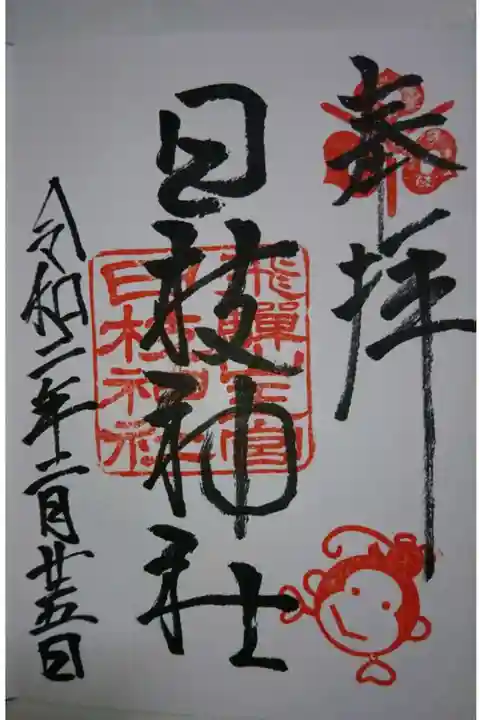 奉拝
日枝神社
飛騨山王宮
日枝神社
令和二年十二月廿五日